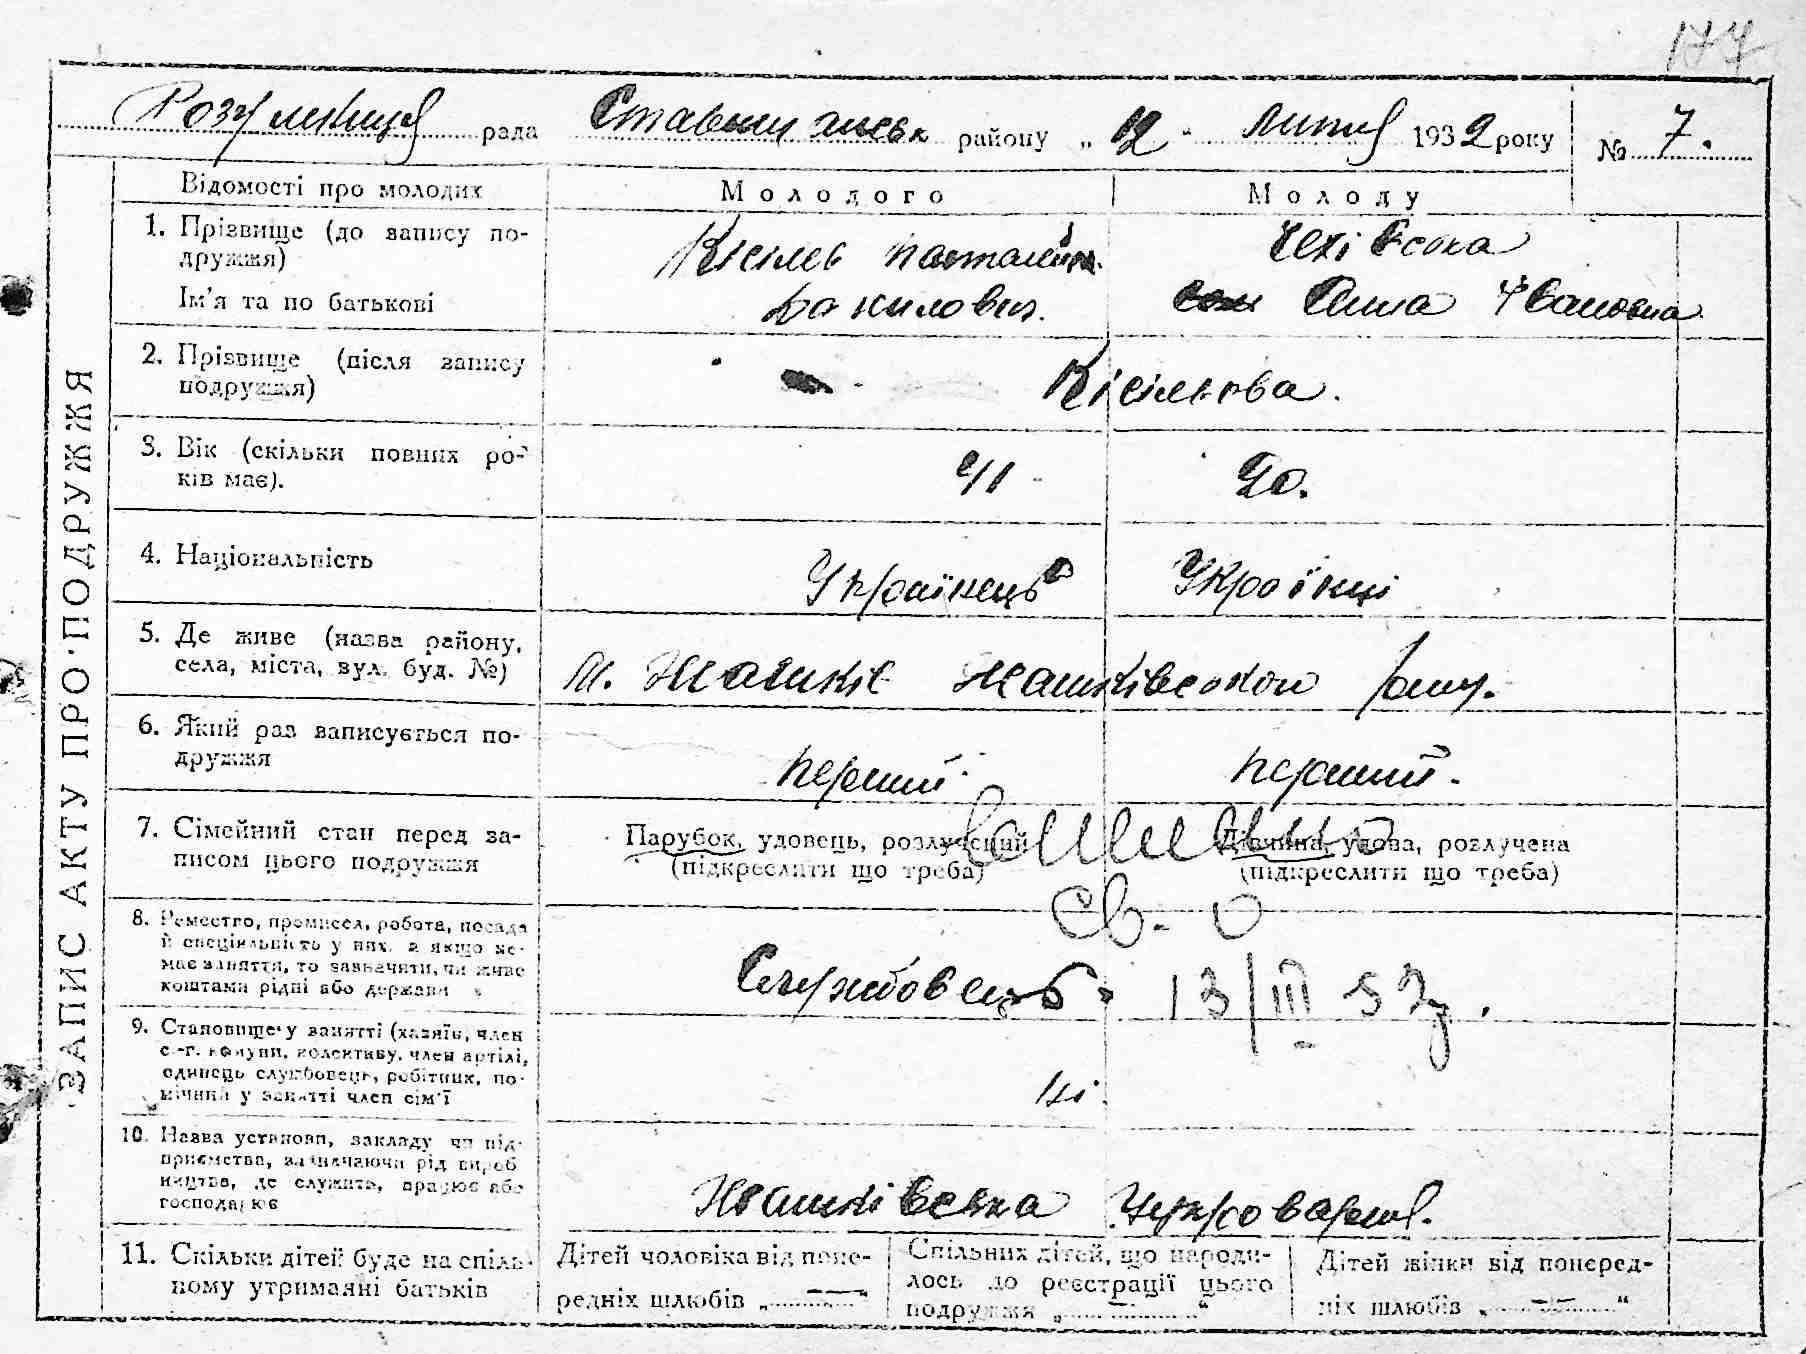 177
рада Ставищанськ района „12" Липня 1932 року № 7.
Відомості про молодих Молодого Молоду
ЗАПИС АКТУ ПРО ПОДРУЖЖЯ
1. Прізвище (до запису по-
дружжя)
Ім'я та по батькові
Кісіль
Чехівська
Анна Івановна
2. Прізвище (після запису
подружжя)
Кісільова.
3. Вік (скільки повних ро-
ків має).
41 20.
4. Національність
Українець Українці
5. Де живе (назва району,
села, міста, вул. буд. №)
м. Жашків Жашківського
6. Який раз записується по-
дружжя
перший перший.
7. Сімейний стан перед за-
писом цього подружжя
Парубок, удовець, розлучений
(підкреслити що треба)
Дівчина, удова, розлучена
(підкреслити що треба)
св-о
13/III 52
8. Ремество, промисел, робота, посада
й спеціяльність у них, а якщо не-
має заняття, то зазначити, чи живе
коштами рідні або держави
Службовець
9. Становище у занятті (хазяїн, член
с.-г. комуни, колективу, член артілі,
одинець службовець, робітник, по-
мічний у занятті член сім'ї
ні
10. Назва установи, закладу чи під-
приємства, зазначаючи рід вироб
ництва, де служить, працює або
господарює
Жашківська Цукроварня.
11. Скільки дітей буде на спіль-
ному утриманні батьків
Дітей чоловіка від попе-
редніх шлюбів „—"
Спільних дітей, що народи-
лось до реєстрації цього
подружжя „—"
Дітей жінки від поперед-
ніх шлюбів „—"